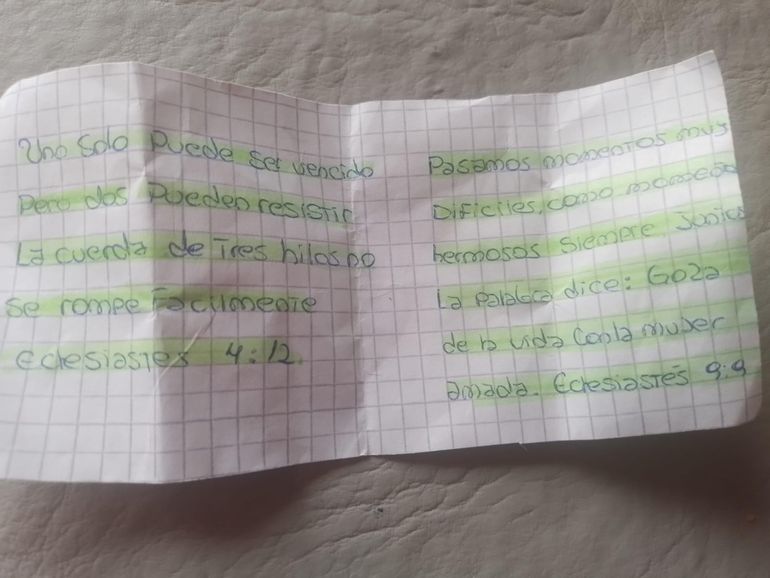 Uno Solo Puede Ser vencido
Pero dos Pueden resistir
La cuerda de Tres hilos no
Se rompe Facilmente
Eclesiastes 4:12.
Pasamos momentos muy
Dificiles, como momentos
hermosos Siempre Juntos
La Palabra dice: Goza
de la vida Con la mujer
amada. Eclesiastés 9:9